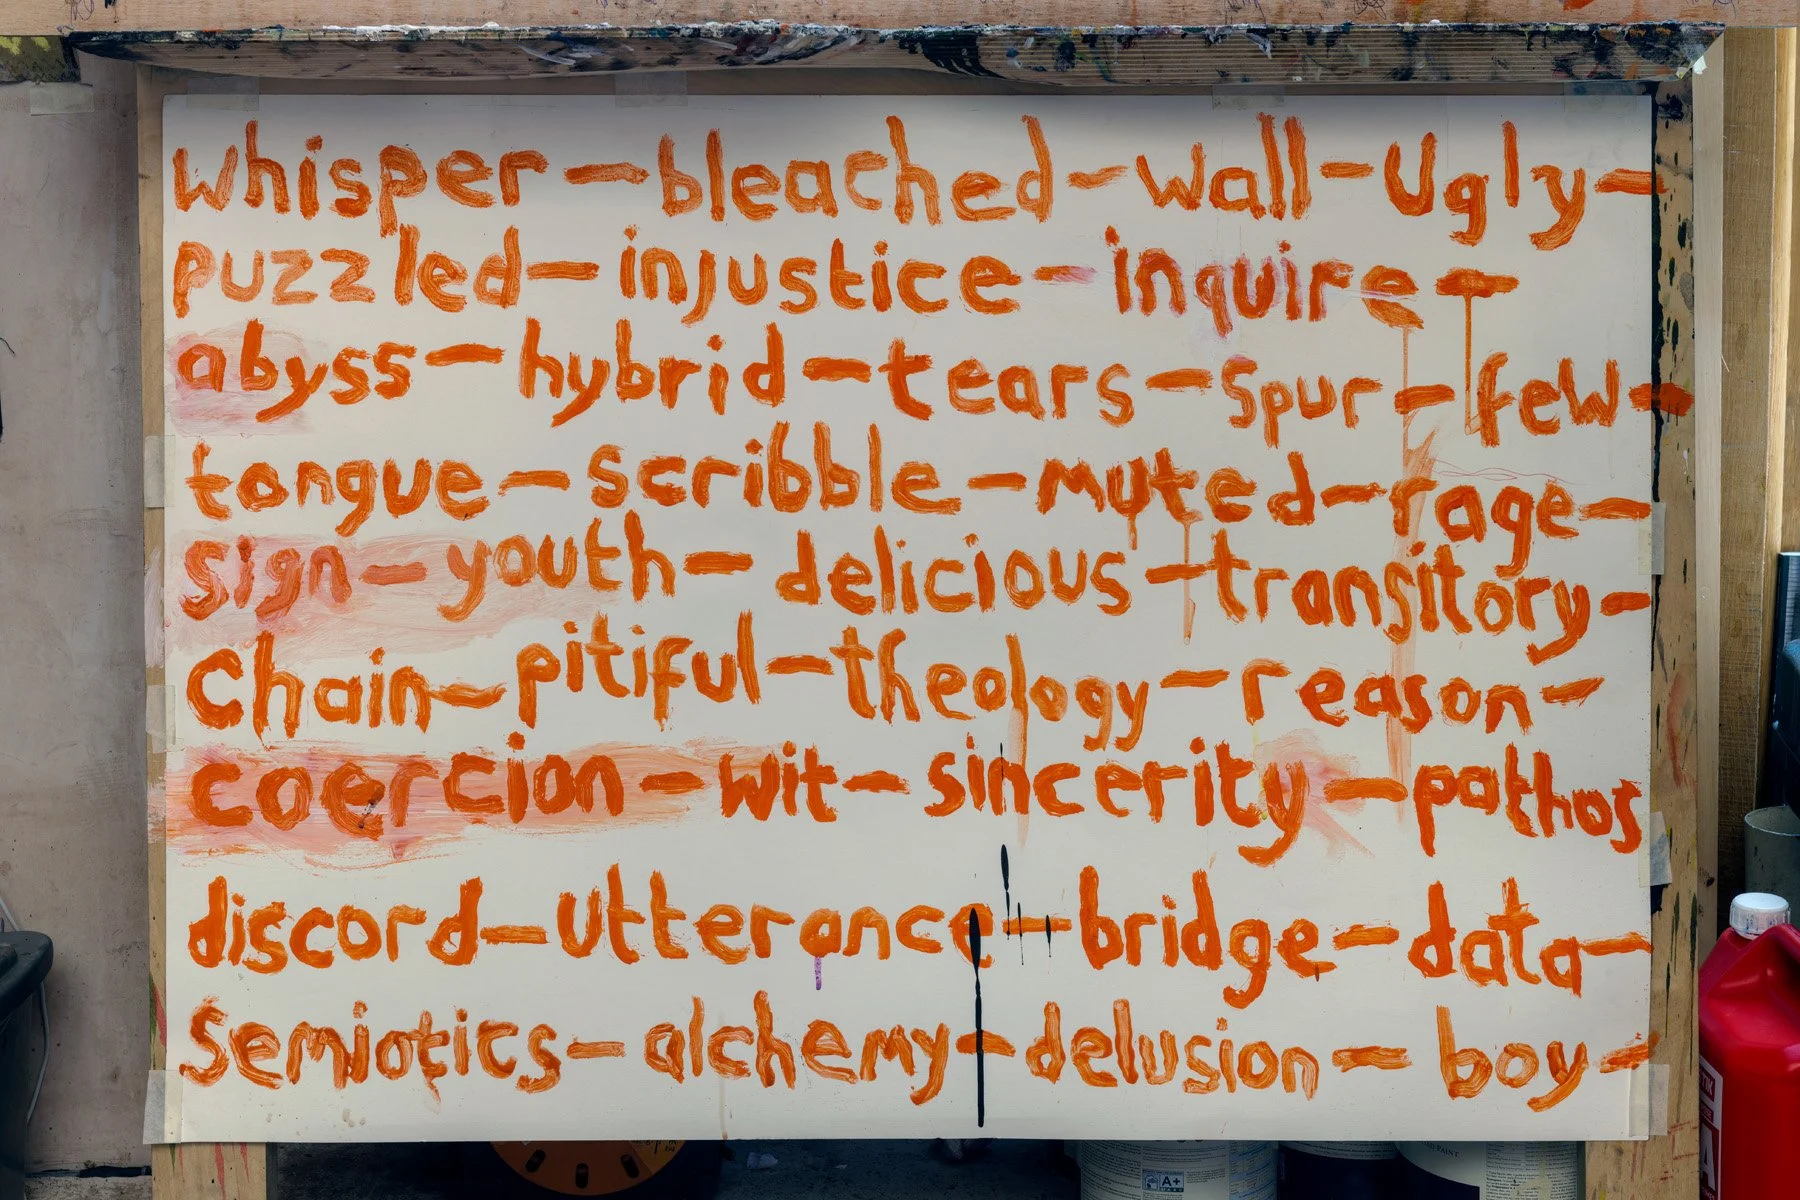 whisper — bleached — wall — Ugly —
puzzled — injustice — inquire —
abyss — hybrid — tears — spur — few —
tongue — scribble — muted — rage —
sign — youth — delicious — transitory —
Chain — pitiful — theology — reason —
coercion — wit — sincerity — pathos
discord — utterance — bridge — data —
Semiotics — alchemy — delusion — boy —
A+